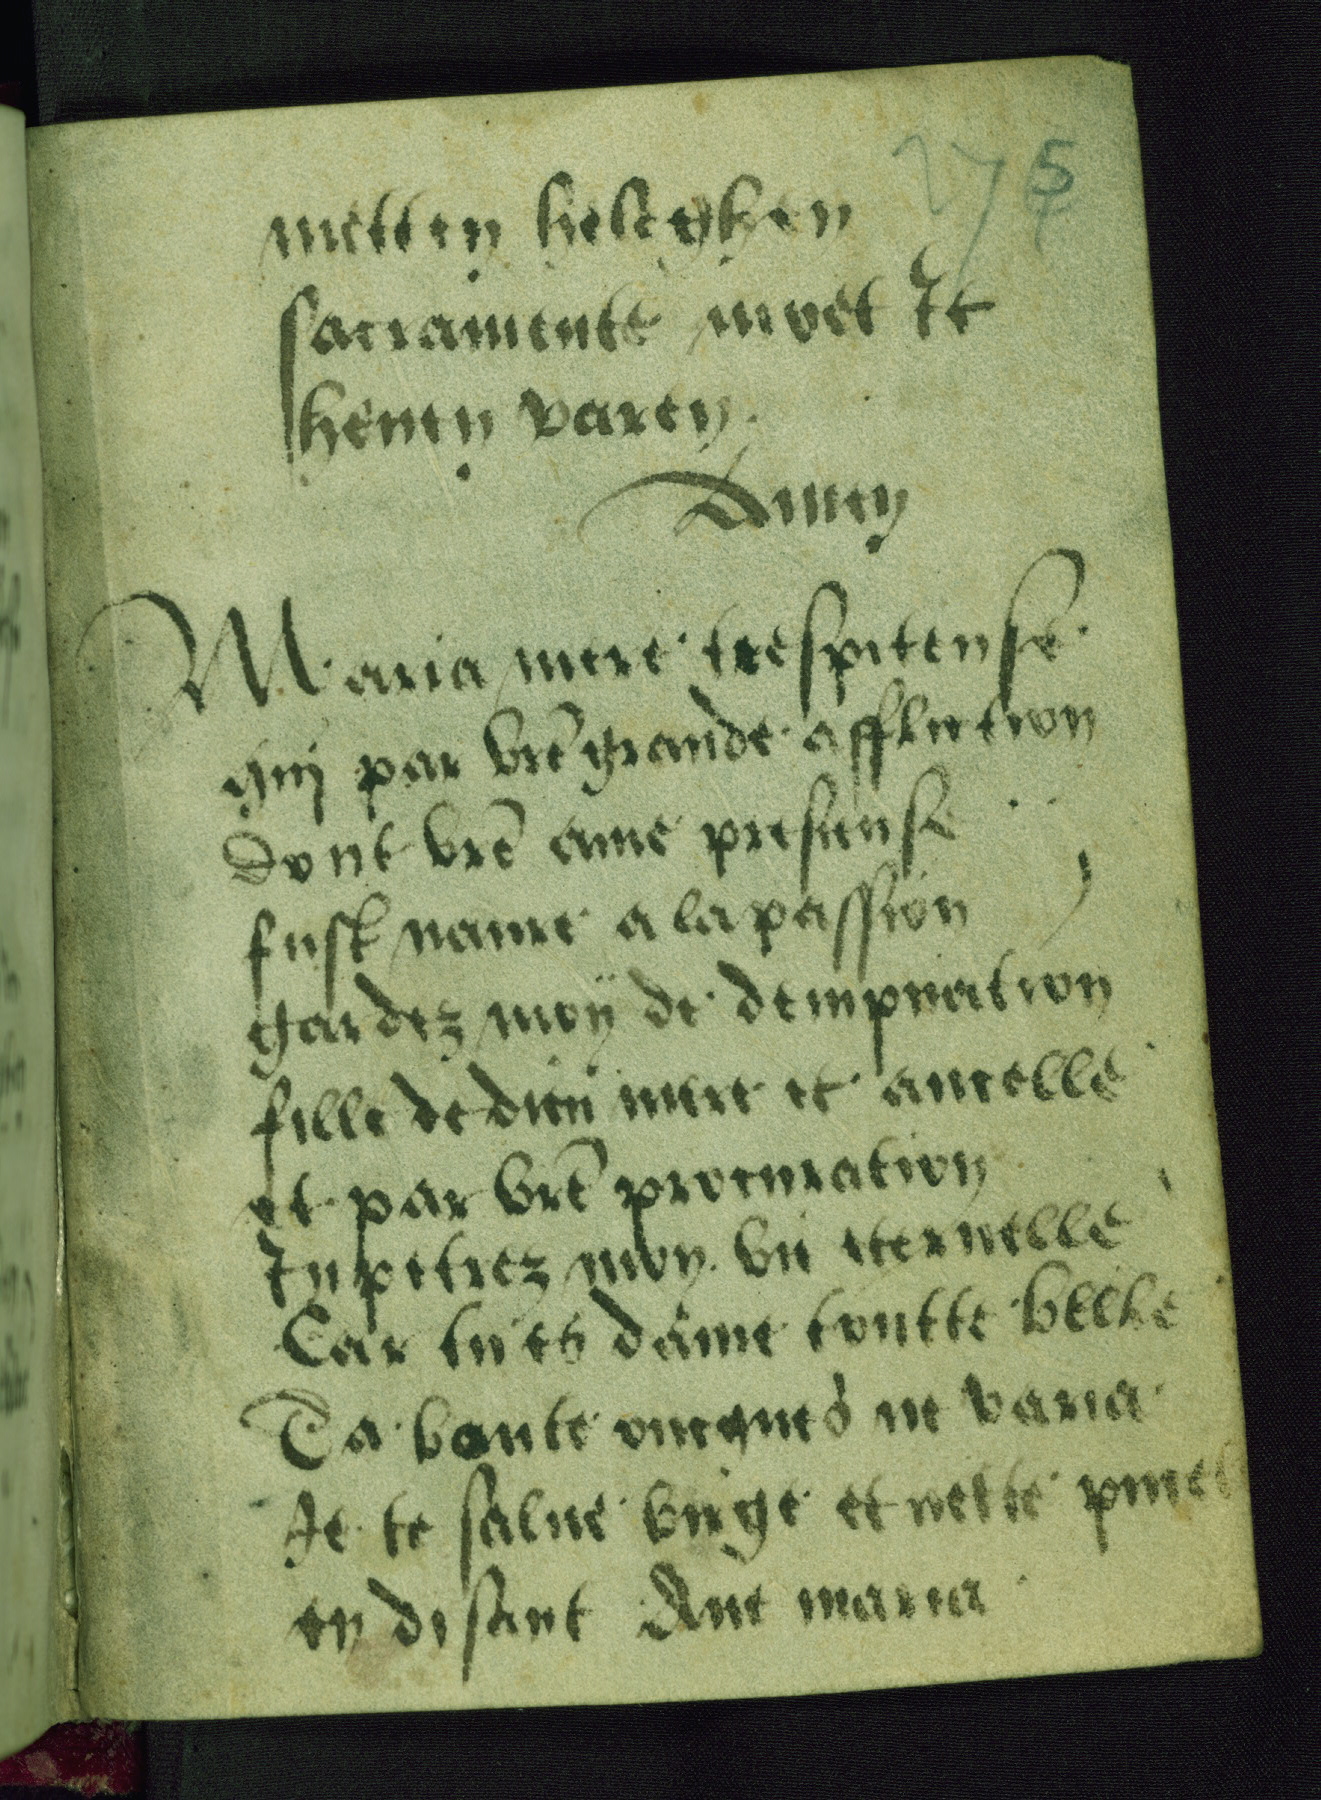 275
metten helighen
sacramente moet Ic
henen varen.
Amen
Maria mere trespiteuse
quy par vrē grande affliction
Dont vrē ame presieuse
fust naure a la passion
gardez moÿ de dempnation
fille de dieu mere et ancelle
et par vrē procuration
Inpetrez moy vie eternelle
Car tu es dame toutte belle
Ta bonte oncques ne varia
Je te salue virge et nette
en disant Aue maria